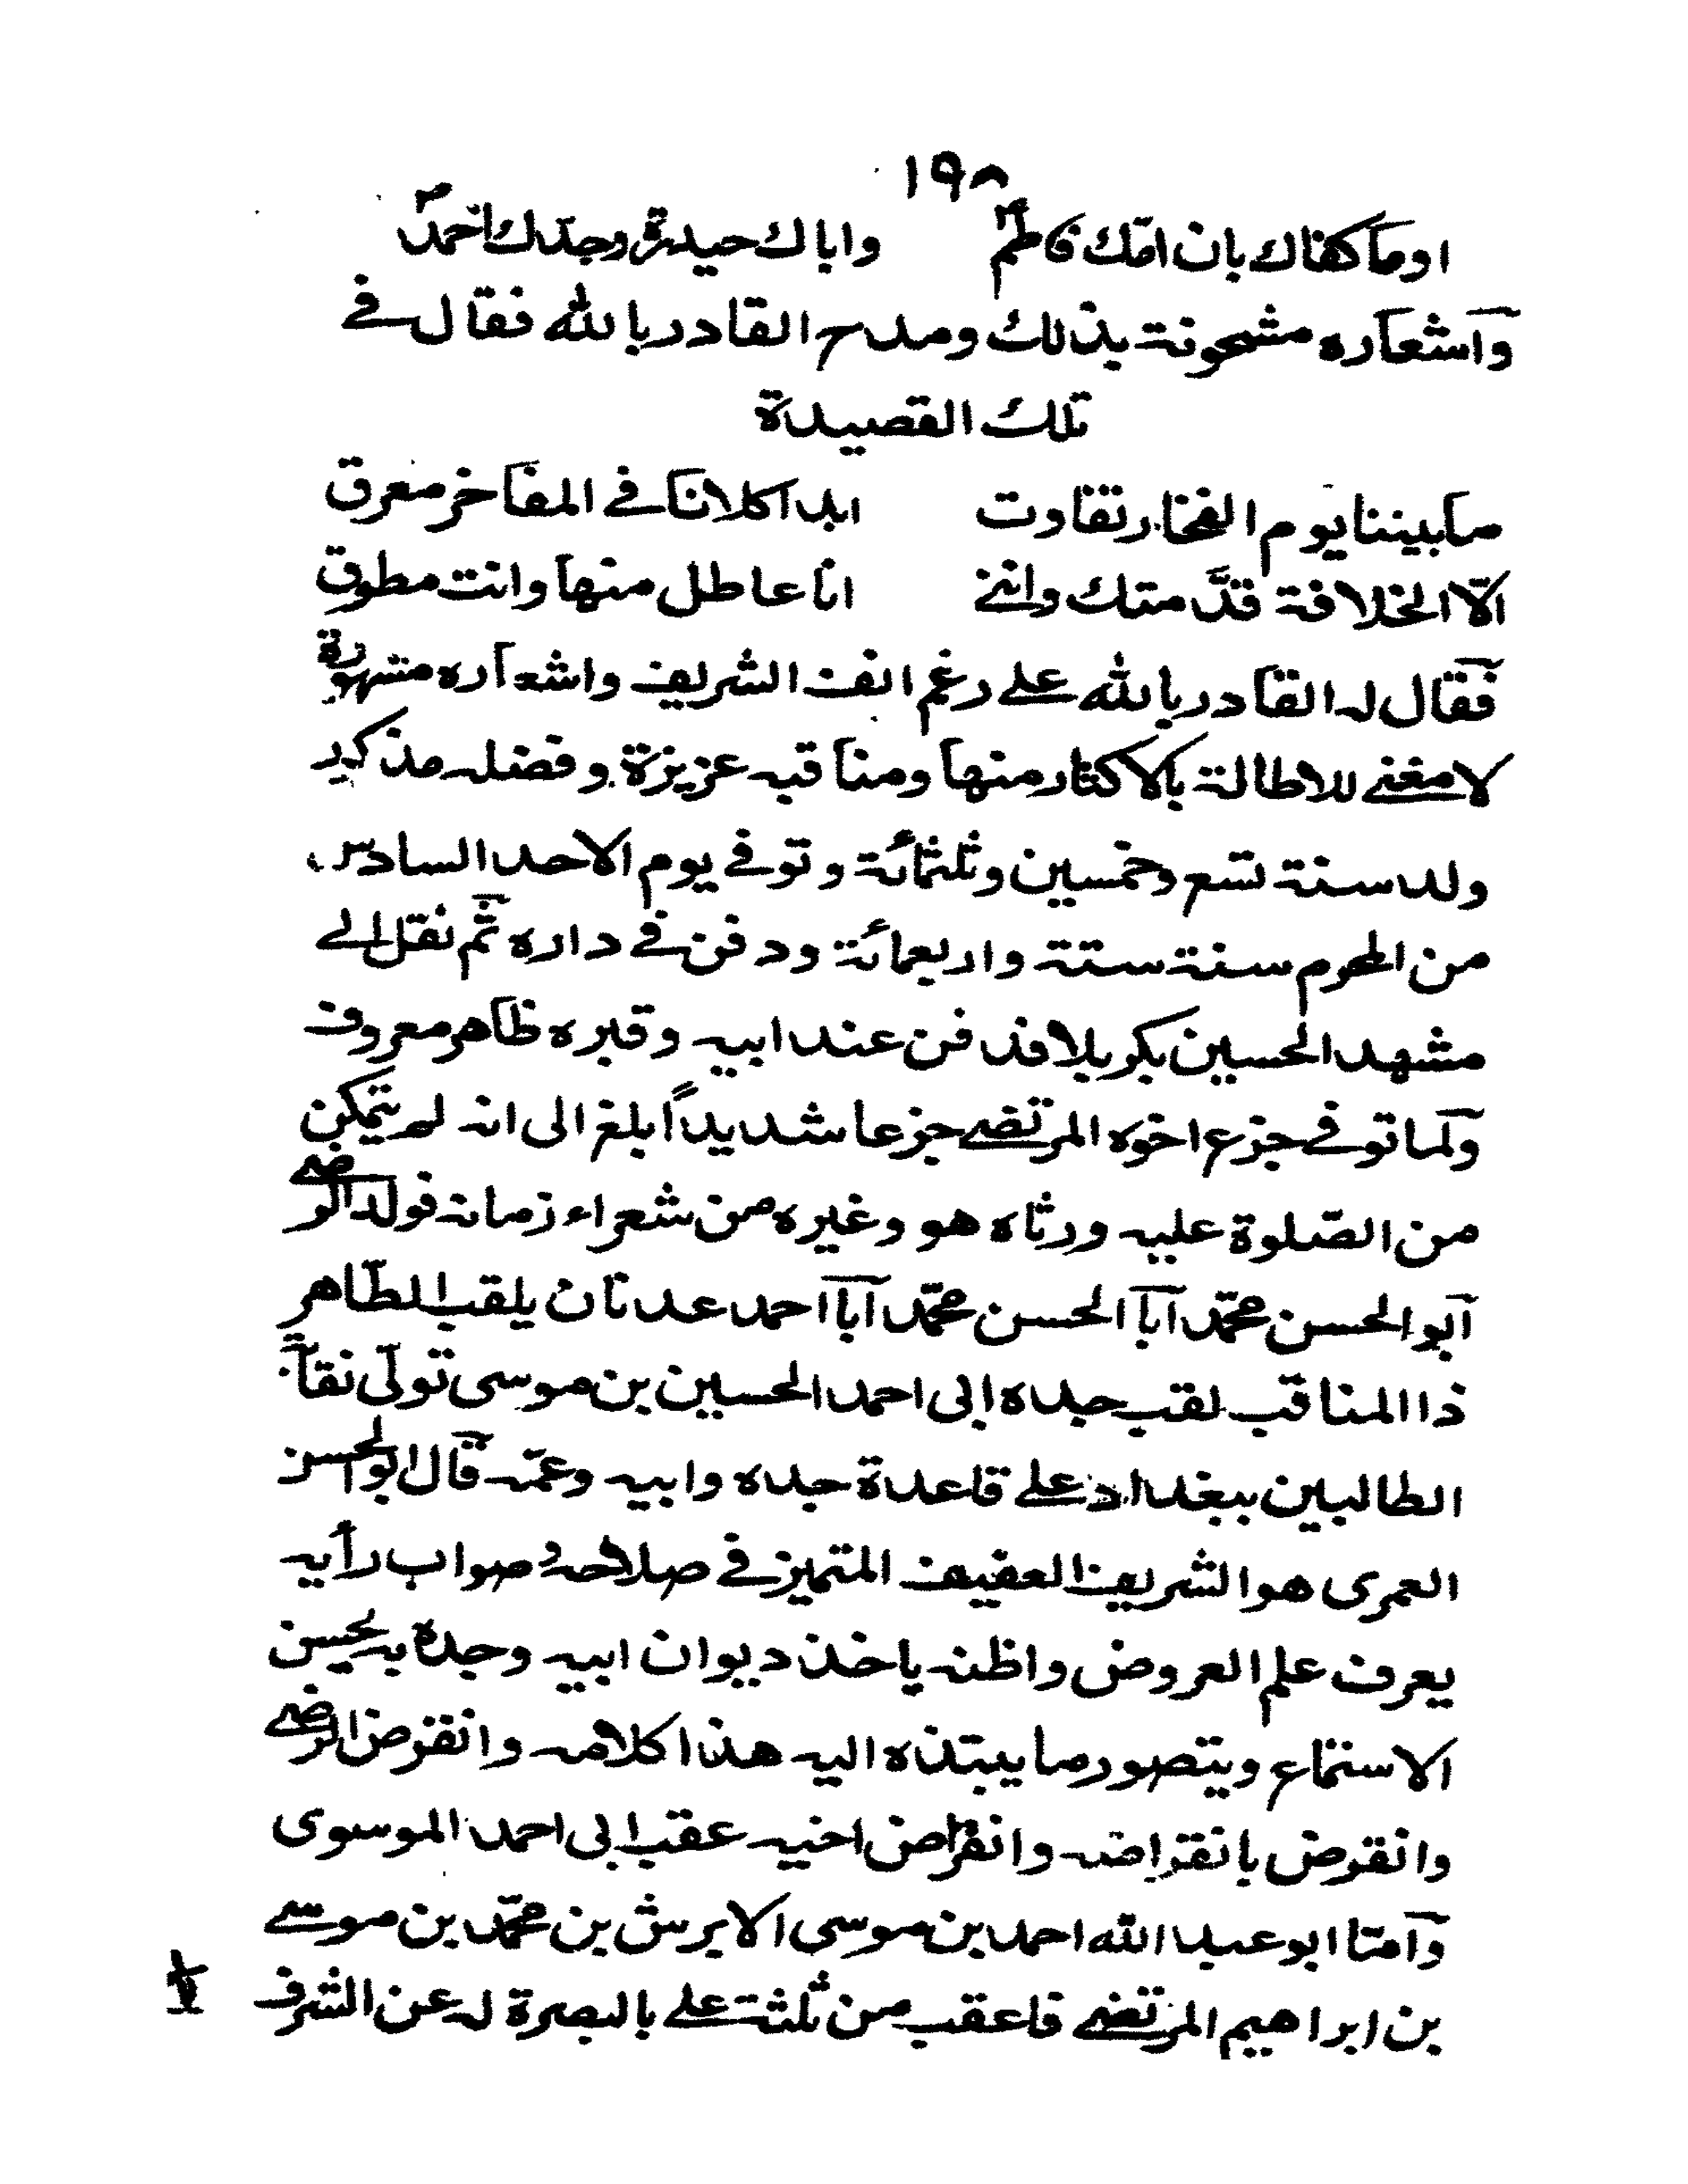 ١٩٨
اوما كفاك بان امّك فاطمٌ واباك حيدرة وجدّك احمدٌ
واشعاره مشحونة بذلك ومدح القادر بالله فقال فے
تلك القصيدة
ما بيننا يوم الفخار تفاوت ابدا كلانا فے المفاخر معرق
الّا الخلافة قدَّمتك واننے انا عاطل منها وانت مطوق
فقال له القادر بالله علے رغم انف الشريف واشعاره مشهورة
لا مغنے للاطالة بالاكثار منها ومناقبه عزيزة وفضله مذكور
ولد سنة تسع وخمسين وثلثمائة وتوفے يوم الاحد السادس
من المحرم سنة ستة واربعمائة ودفن فے داره ثم نقل الے
مشهد الحسين بكربلا فدفن عند ابيه وقبره ظاهر معروف
ولما توفے جزع اخوه المرتضے جزعا شديداً بلغ الى انه لم يتمكن
من الصّلوة عليه ورثاه هو وغيره من شعراء زمانه فولد الرضے
ابو الحسن محمّد ابا الحسن محمّد ابا احمد عدنان يلقب الطّاهر
ذا المناقب لقب جده ابى احمد الحسين بن موسى تولّى نقابة
الطالبين ببغداد علے قاعدة جده وابيه وعمّه قال ابو الحسن
العمرى هو الشريف العفيف المتميز فے صلاحه وصواب رأيه
يعرف علم العروض واظنه ياخذ ديوان ابيه وجدة به يحسن
الاستماع ويتصور ما يبتذه اليه هذا كلامه وانقرض الرضے
وانقرض بانقراضه وانقراض اخيه عقب ابى احمد الموسوى
وامّا ابو عبد الله احمد بن موسى الابرش بن محمّد بن موسے
بن ابراهيم المرتضے فاعقب من ثلثة علے بالبصرة له عن الشرف